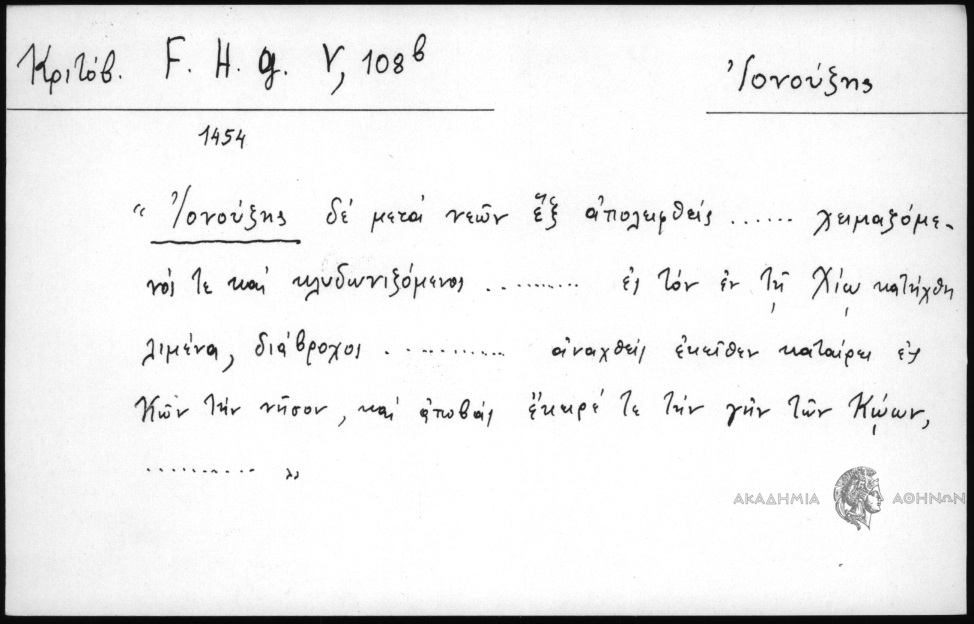 Κριτόβ. F. H. g. V, 108β
Ἰονούξης
1454
“ Ἰονούξης δέ μετά νεῶν ἕξ ἀπολειφθείς ...... χειμαζόμε-
νός τε καί κλυδωνιζόμενος .......... ἐς τόν ἐν τῇ Χίῳ κατήχθη
λιμένα, διάβροχος ............. ἀναχθείς ἐκεῖθεν καταίρει ἐς
Κῶν τήν νῆσον, καί ἀποβάς ἔκειρέ τε τήν γῆν τῶν Κῴων,
........... ”
ΑΚΑΔΗΜΙΑ ΑΘΗΝΩΝ